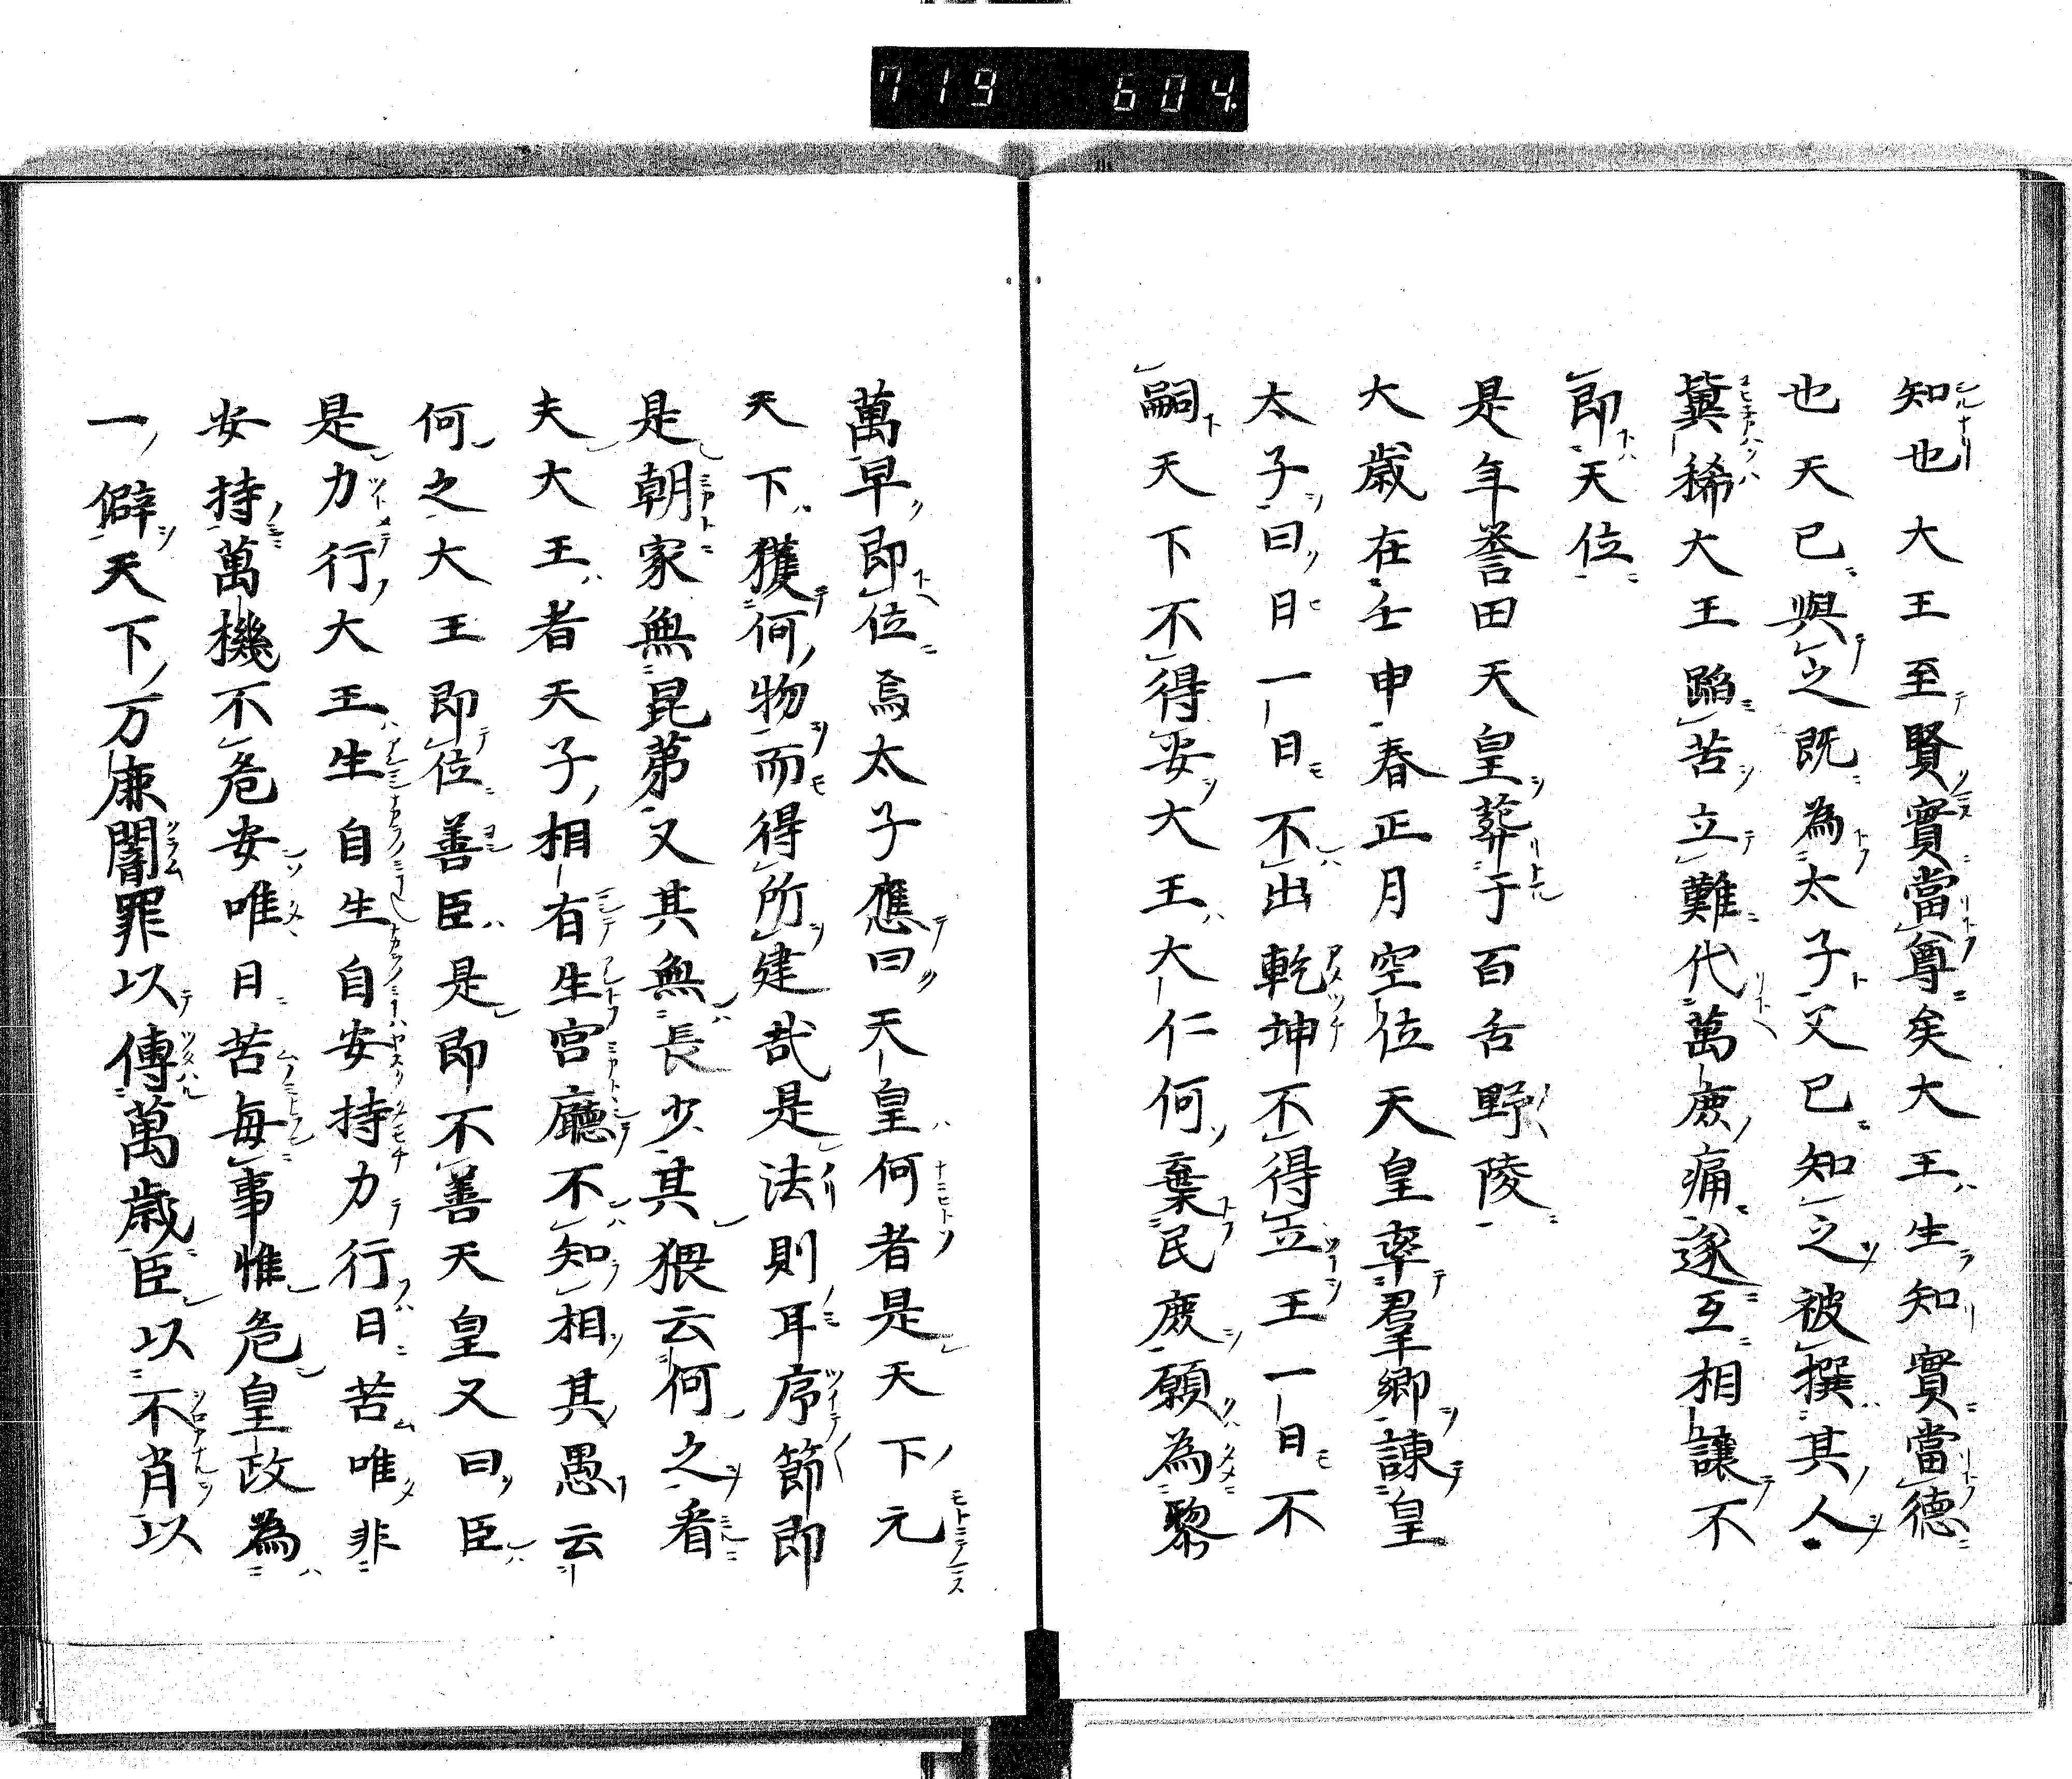 719 604.
知也大王至賢實當尊矣大王生知實當德
也天已與之既為太子父已知之被撰其人
冀稀大王蹈苦立難代萬庶痛逐互相讓不
即天位
是年誉田天皇葬于百舌野陵
大歳在壬申春正月空位天皇率羣卿諫皇
太子曰日一日不出乾坤不得立王一日不
嗣天下不得安大王大仁何棄民庶願為黎
萬早即位焉太子應曰天皇何者是天下元
天下獲何物而得所建哉是法則耳序節即
是朝家無昆弟又其無長少其猥云何之看
夫大王者天子相有生宮廳不知相其愚云
何之大王即位善臣是即不善天皇又曰臣
是力行大王生自生自安持力行日苦唯非
安持萬機不危安唯日苦毎事惟危皇政為
一僻天下万庶闇罪以傳萬歳臣以不肖以